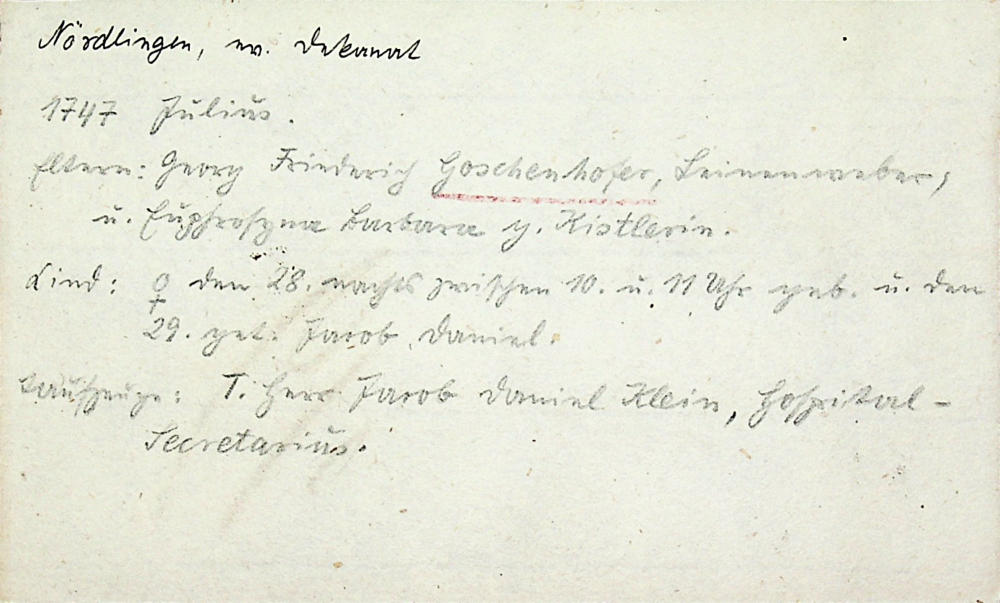 Nördlingen, ev. Dekanat
1747 Julius.
Eltern: Georg Friederich Goschenhofer, Leinenweber,
u. Euphrosyna Barbara g. Kistlerin.
Kind: ♀ den 28. nachts zwischen 10. u. 11 Uhr geb. u. den
29. get. Jacob Daniel.
Taufzeuge: T. Herr Jacob Daniel Klein, Hospital-
Secretarius.